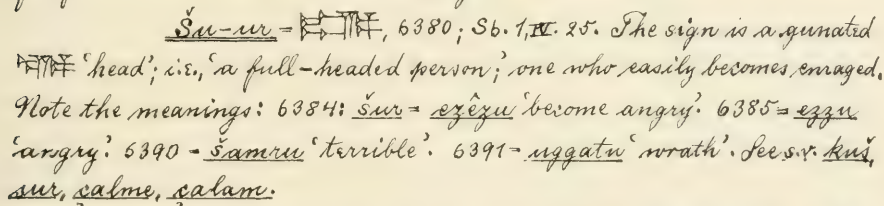 Šu-ur = , 6380; Sb. 1, IV. 25. The sign is a gunated
'head'; i.e., 'a full-headed person'; one who easily becomes enraged.
Note the meanings: 6384: šur = ezêzu 'become angry'. 6385 = ezzu
'angry'. 6390 = šamru 'terrible'. 6391 = uggatu 'wrath'. See s.v. kuš,
sur, calme, calam.